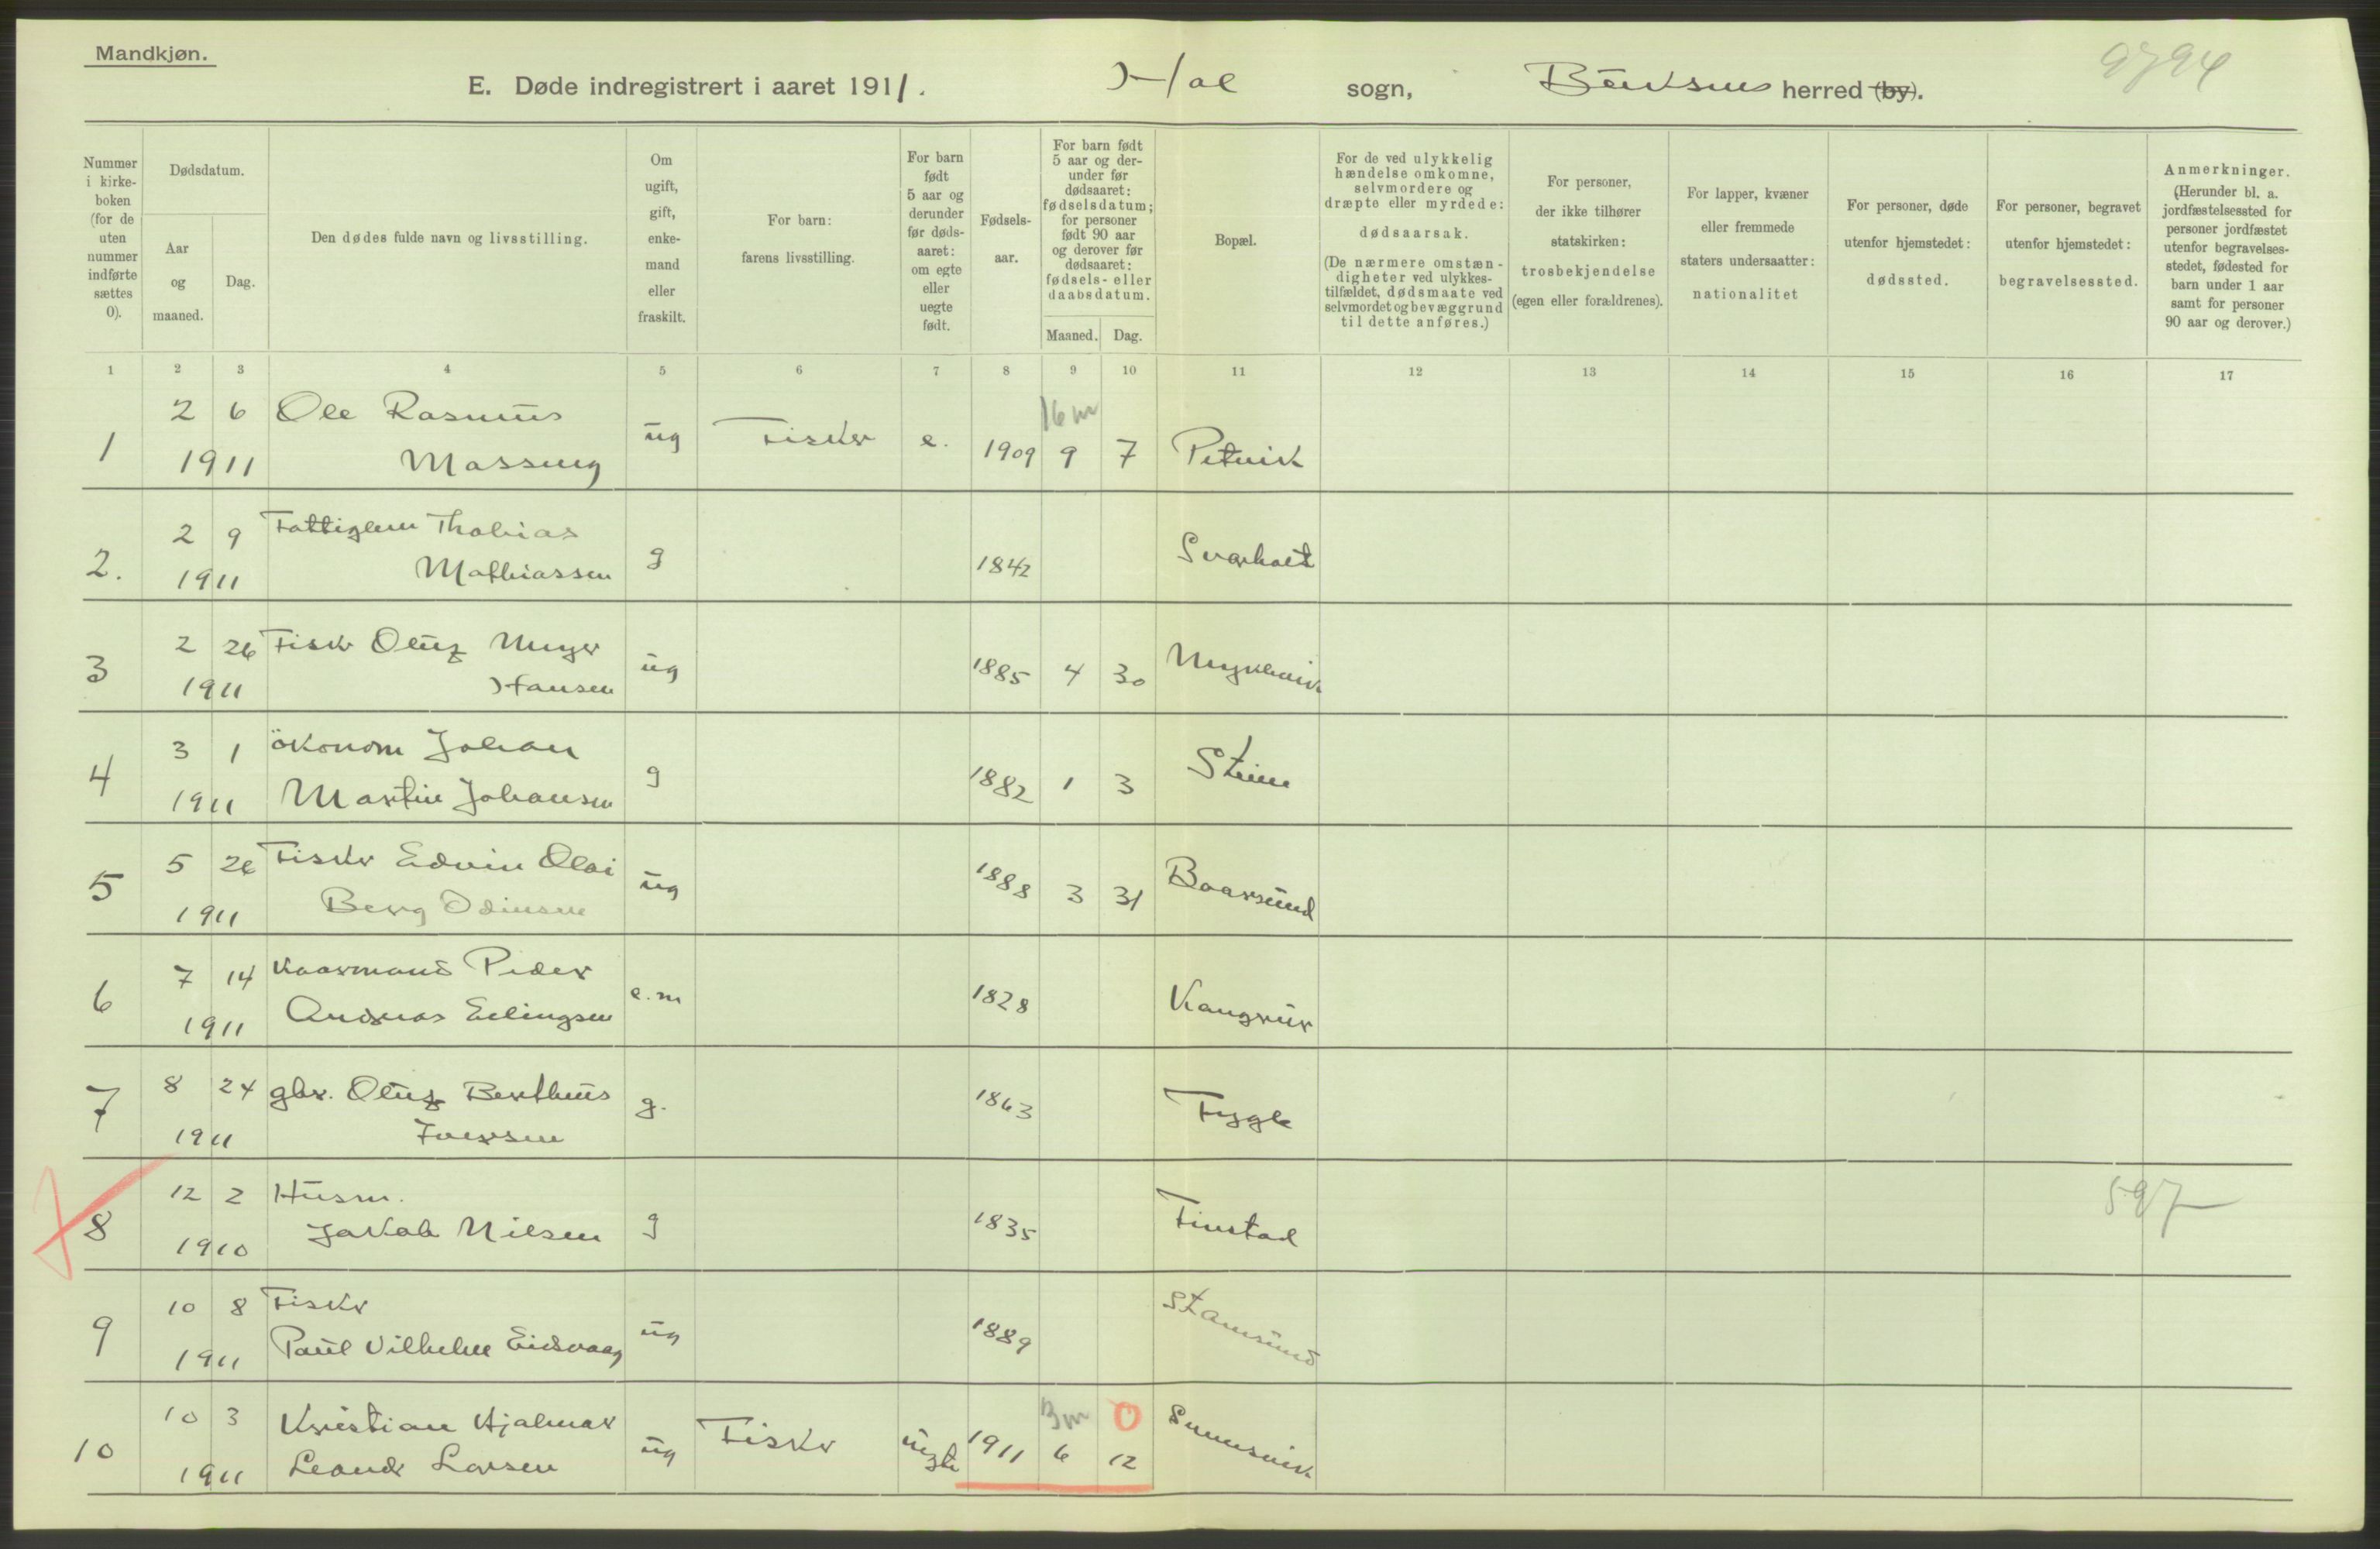 Mandkjøn.
E. Døde indregistrert i aaret 1911. Hol sogn, Buksnes herred (by).
9794
Nummer i kirke-boken (for de uten nummer indførte sættes 0).
Dødsdatum.
Aar og maaned.
Dag.
Den dødes fulde navn og livsstilling.
Om ugift, gift, enke-mand eller fraskilt.
For barn: farens livsstilling.
For barn født 5 aar og derunder før døds-aaret: om egte eller uegte født.
Fødsels-aar.
For barn født 5 aar og der-under før dødsaaret: fødselsdatum; for personer født 90 aar og derover før dødsaaret: fødsels- eller daabsdatum.
Maaned. Dag.
Bopæl.
For de ved ulykkelig hændelse omkomne, selvmordere og dræpte eller myrdede: dødsaarsak. (De nærmere omstæn-digheter ved ulykkes-tilfældet, dødsmaate ved selvmordet og bevæggrund til dette anføres.)
For personer, der ikke tilhører statskirken: trosbekjendelse (egen eller forældrenes).
For lapper, kvæner eller fremmede staters undersaatter: nationalitet
For personer, døde utenfor hjemstedet: dødssted.
For personer, begravet utenfor hjemstedet: begravelsessted.
Anmerkninger. (Herunder bl. a. jordfæstelsessted for personer jordfæstet utenfor begravelses-stedet, fødested for barn under 1 aar samt for personer 90 aar og derover.)
1 2 3 4 5 6 7 8 9 10 11 12 13 14 15 16 17
2 6 Ole Rasmus 16 m
1 1911 Massing ug Fisker e. 1909 9 7 Petvik
2 9 Fattiglem Thobias
2. 1911 Mathiassen g 1842 Svarholt
2 26 Fisker Oluf Meyer
3 1911 Hansen ug 1885 4 30
3 1 økonom Johan
4 1911 Martin Johansen g 1882 1 3 Steine
5 26 Fisker Edvin Olai
5 1911 Berg Odinsen ug 1888 3 31 Baarsund
7 14 Kaarmand Peder
6 1911 Andreas Ellingsen e.m 1828 Kangrur
8 24 gbr. Oluf Bertheus
7 1911 Iversen g. 1863 Fygle
12 2 Husm.
8 1910 Jakob Nilsen g 1835 Finstad 597
10 8 Fisker
9 1911 Paul Vilhelm Eidsvaag ug 1889 Stamsund
10 3 Kristian Hjalmar 3m 0
10 1911 Leander Larsen ug Fisker uegte 1911 6 12